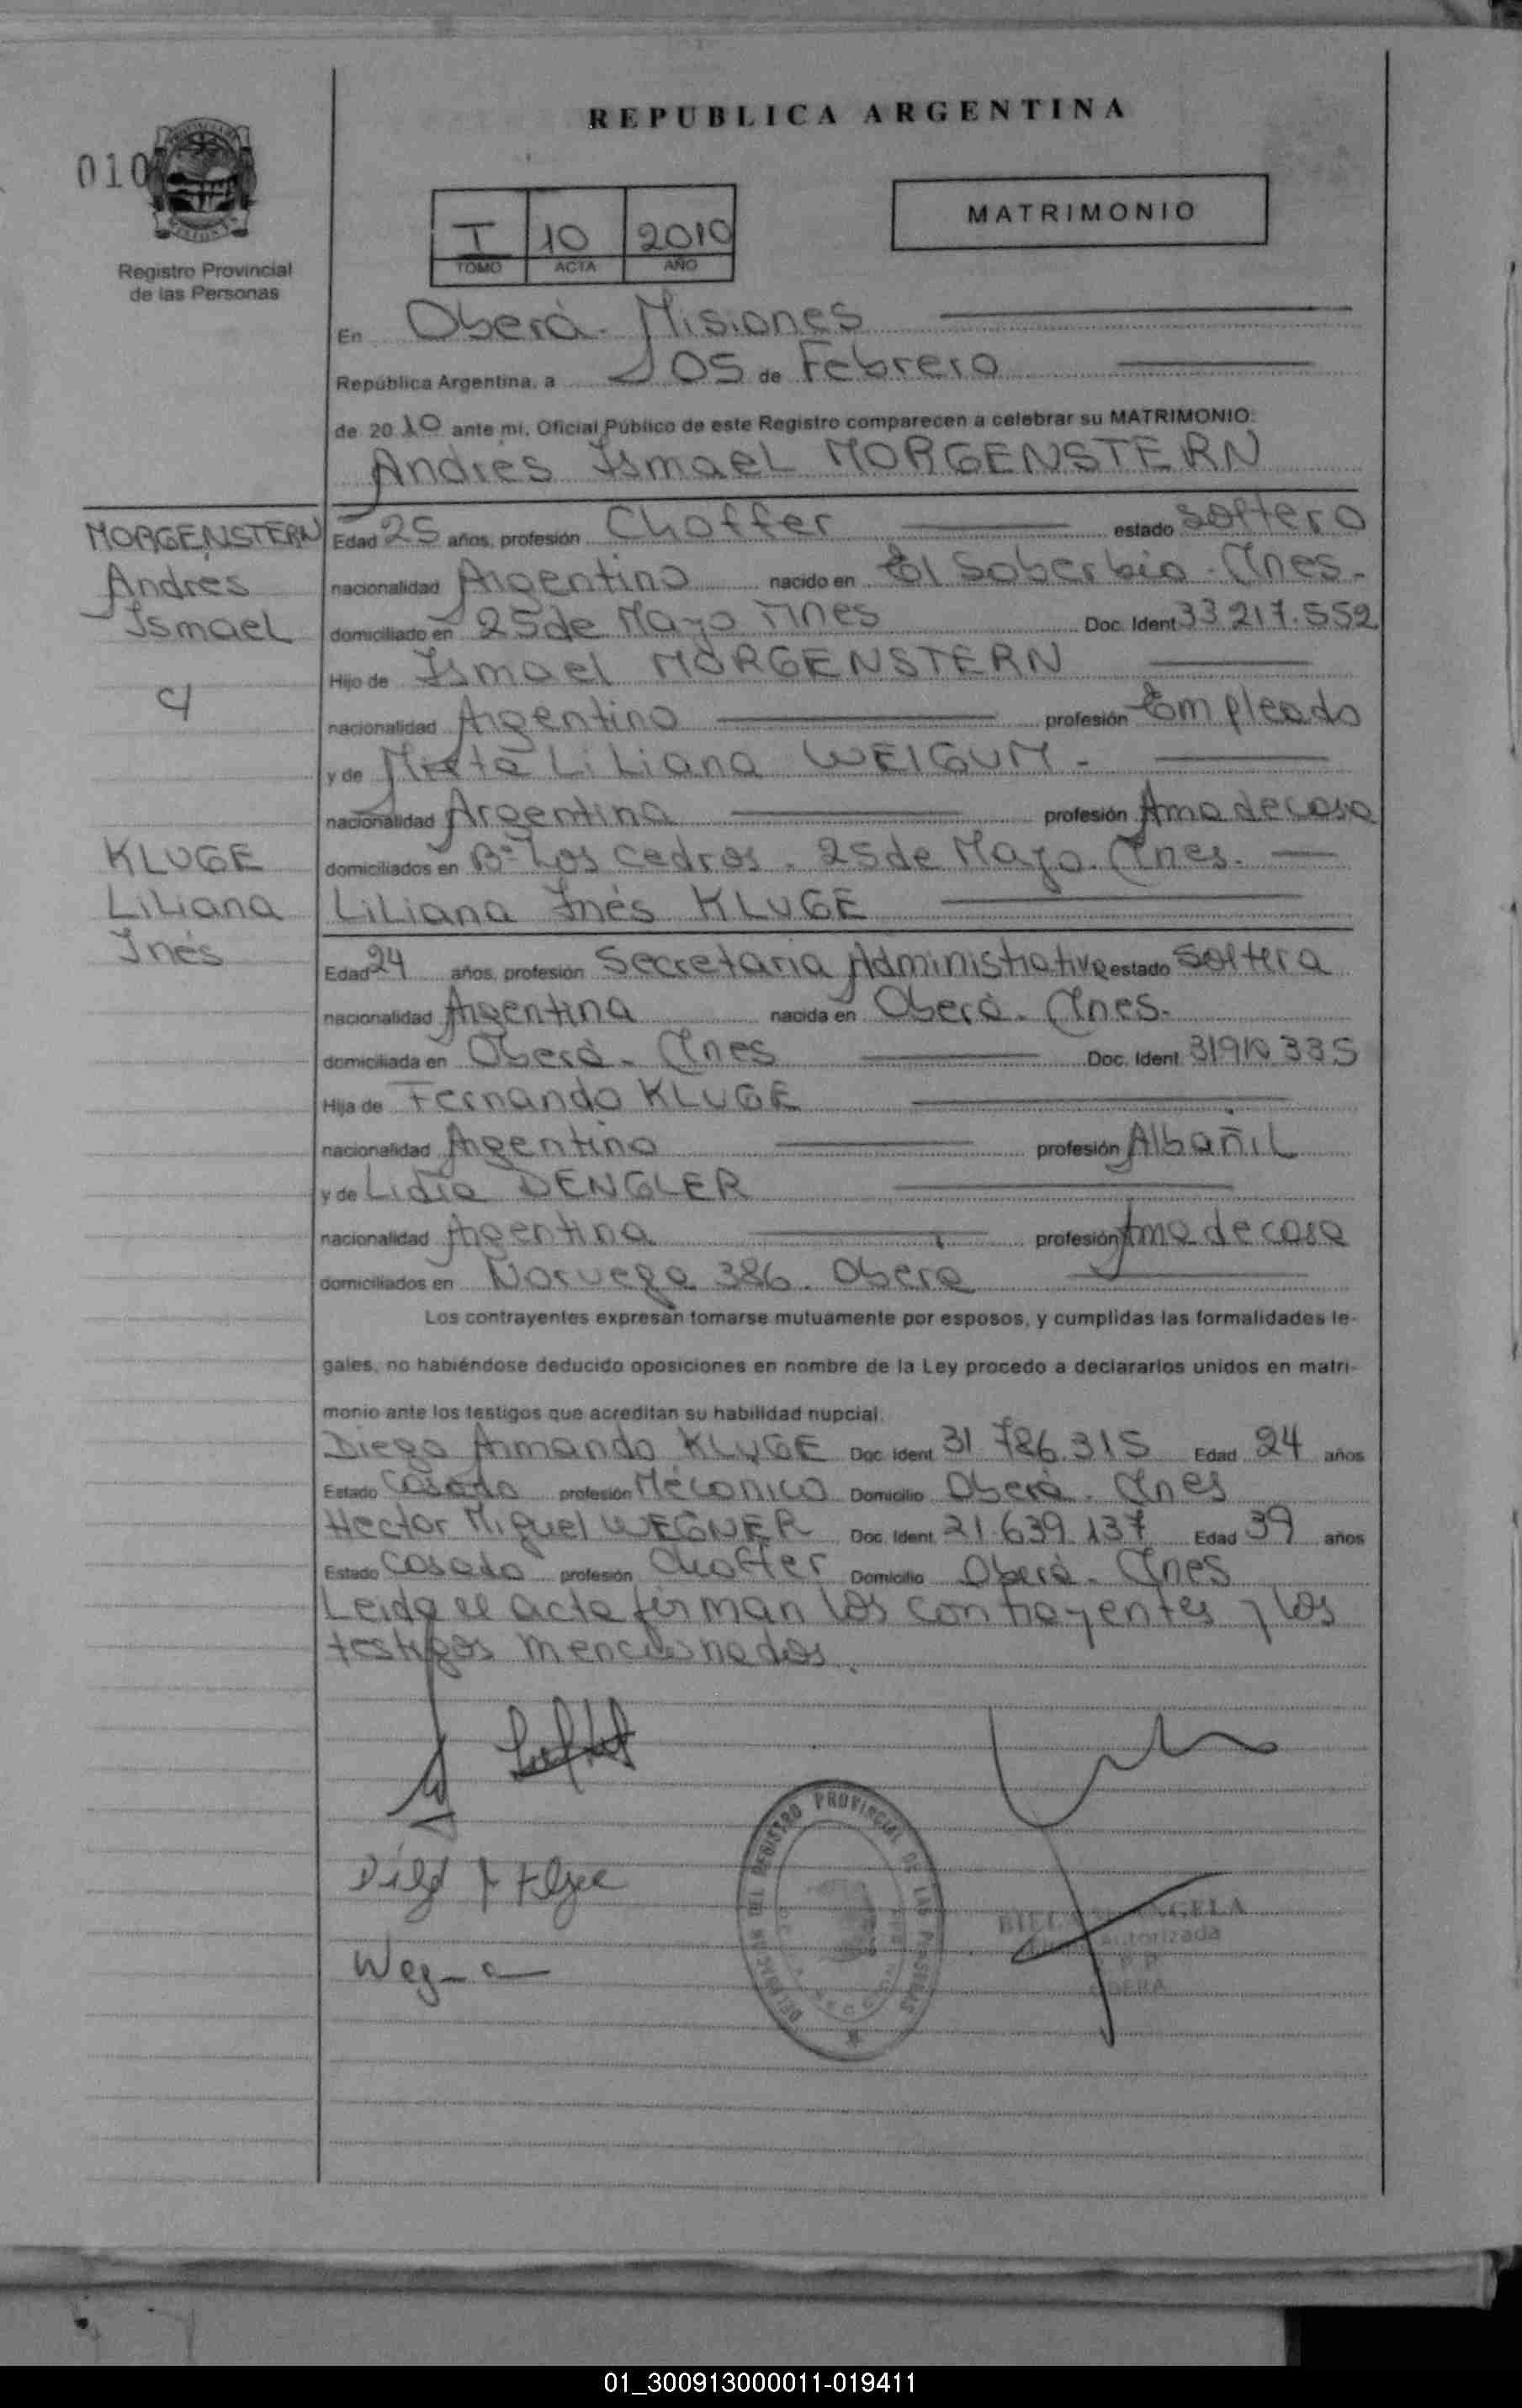 REPUBLICA ARGENTINA
010
MATRIMONIO
I 10 2010
TOMO ACTA AÑO
Registro Provincial
de las Personas
En Oberá - Misiones
República Argentina, a 05 de Febrero
de 2010 ante mi, Oficial Público de este Registro comparecen a celebrar su MATRIMONIO:
Andres Ismael MORGENSTERN
MORGENSTERN
Andrés
Ismael
c/
KLUGE
Liliana
Inés
Edad 25 años, profesión Choffer estado soltero
nacionalidad Argentino nacido en El Soberbio - Mnes.
domiciliado en 25 de Mayo Mnes Doc. Ident 33.217.552
Hijo de Ismael MORGENSTERN
nacionalidad Argentino profesión Empleado
y de Liliana WEIGUM -
nacionalidad Argentina profesión Ama de casa
domiciliados en Bº Los Cedros - 25 de Mayo. Mnes.
Liliana Inés KLUGE
Edad 24 años, profesión Secretaria Administrativa estado Soltera
nacionalidad Argentina nacida en Oberá - Mnes.
domiciliada en Oberá - Mnes Doc. Ident. 31910335
Hija de Fernando KLUGE
nacionalidad Argentino profesión Albañil
y de Lidia DENGLER
nacionalidad Argentina profesión Ama de casa
domiciliados en Noruega 386. Obera
Los contrayentes expresan tomarse mutuamente por esposos, y cumplidas las formalidades le-
gales, no habiéndose deducido oposiciones en nombre de la Ley procedo a declararlos unidos en matri-
monio ante los testigos que acreditan su habilidad nupcial.
Diego Armando KLUGE Doc. Ident. 31.786.315 Edad 24 años
Estado Casado profesión Mécanico Domicilio Oberá - Mnes
Hector Miguel WEGNER Doc. Ident. 21.639.137 Edad 39 años
Estado Casado profesión Choffer Domicilio Oberá - Mnes
Leida el acta firman los contrayentes y los
testigos mencionados.
DEL REGISTRO PROVINCIAL DE LAS PERSONAS
Autorizada
OBERA
01_300913000011-019411